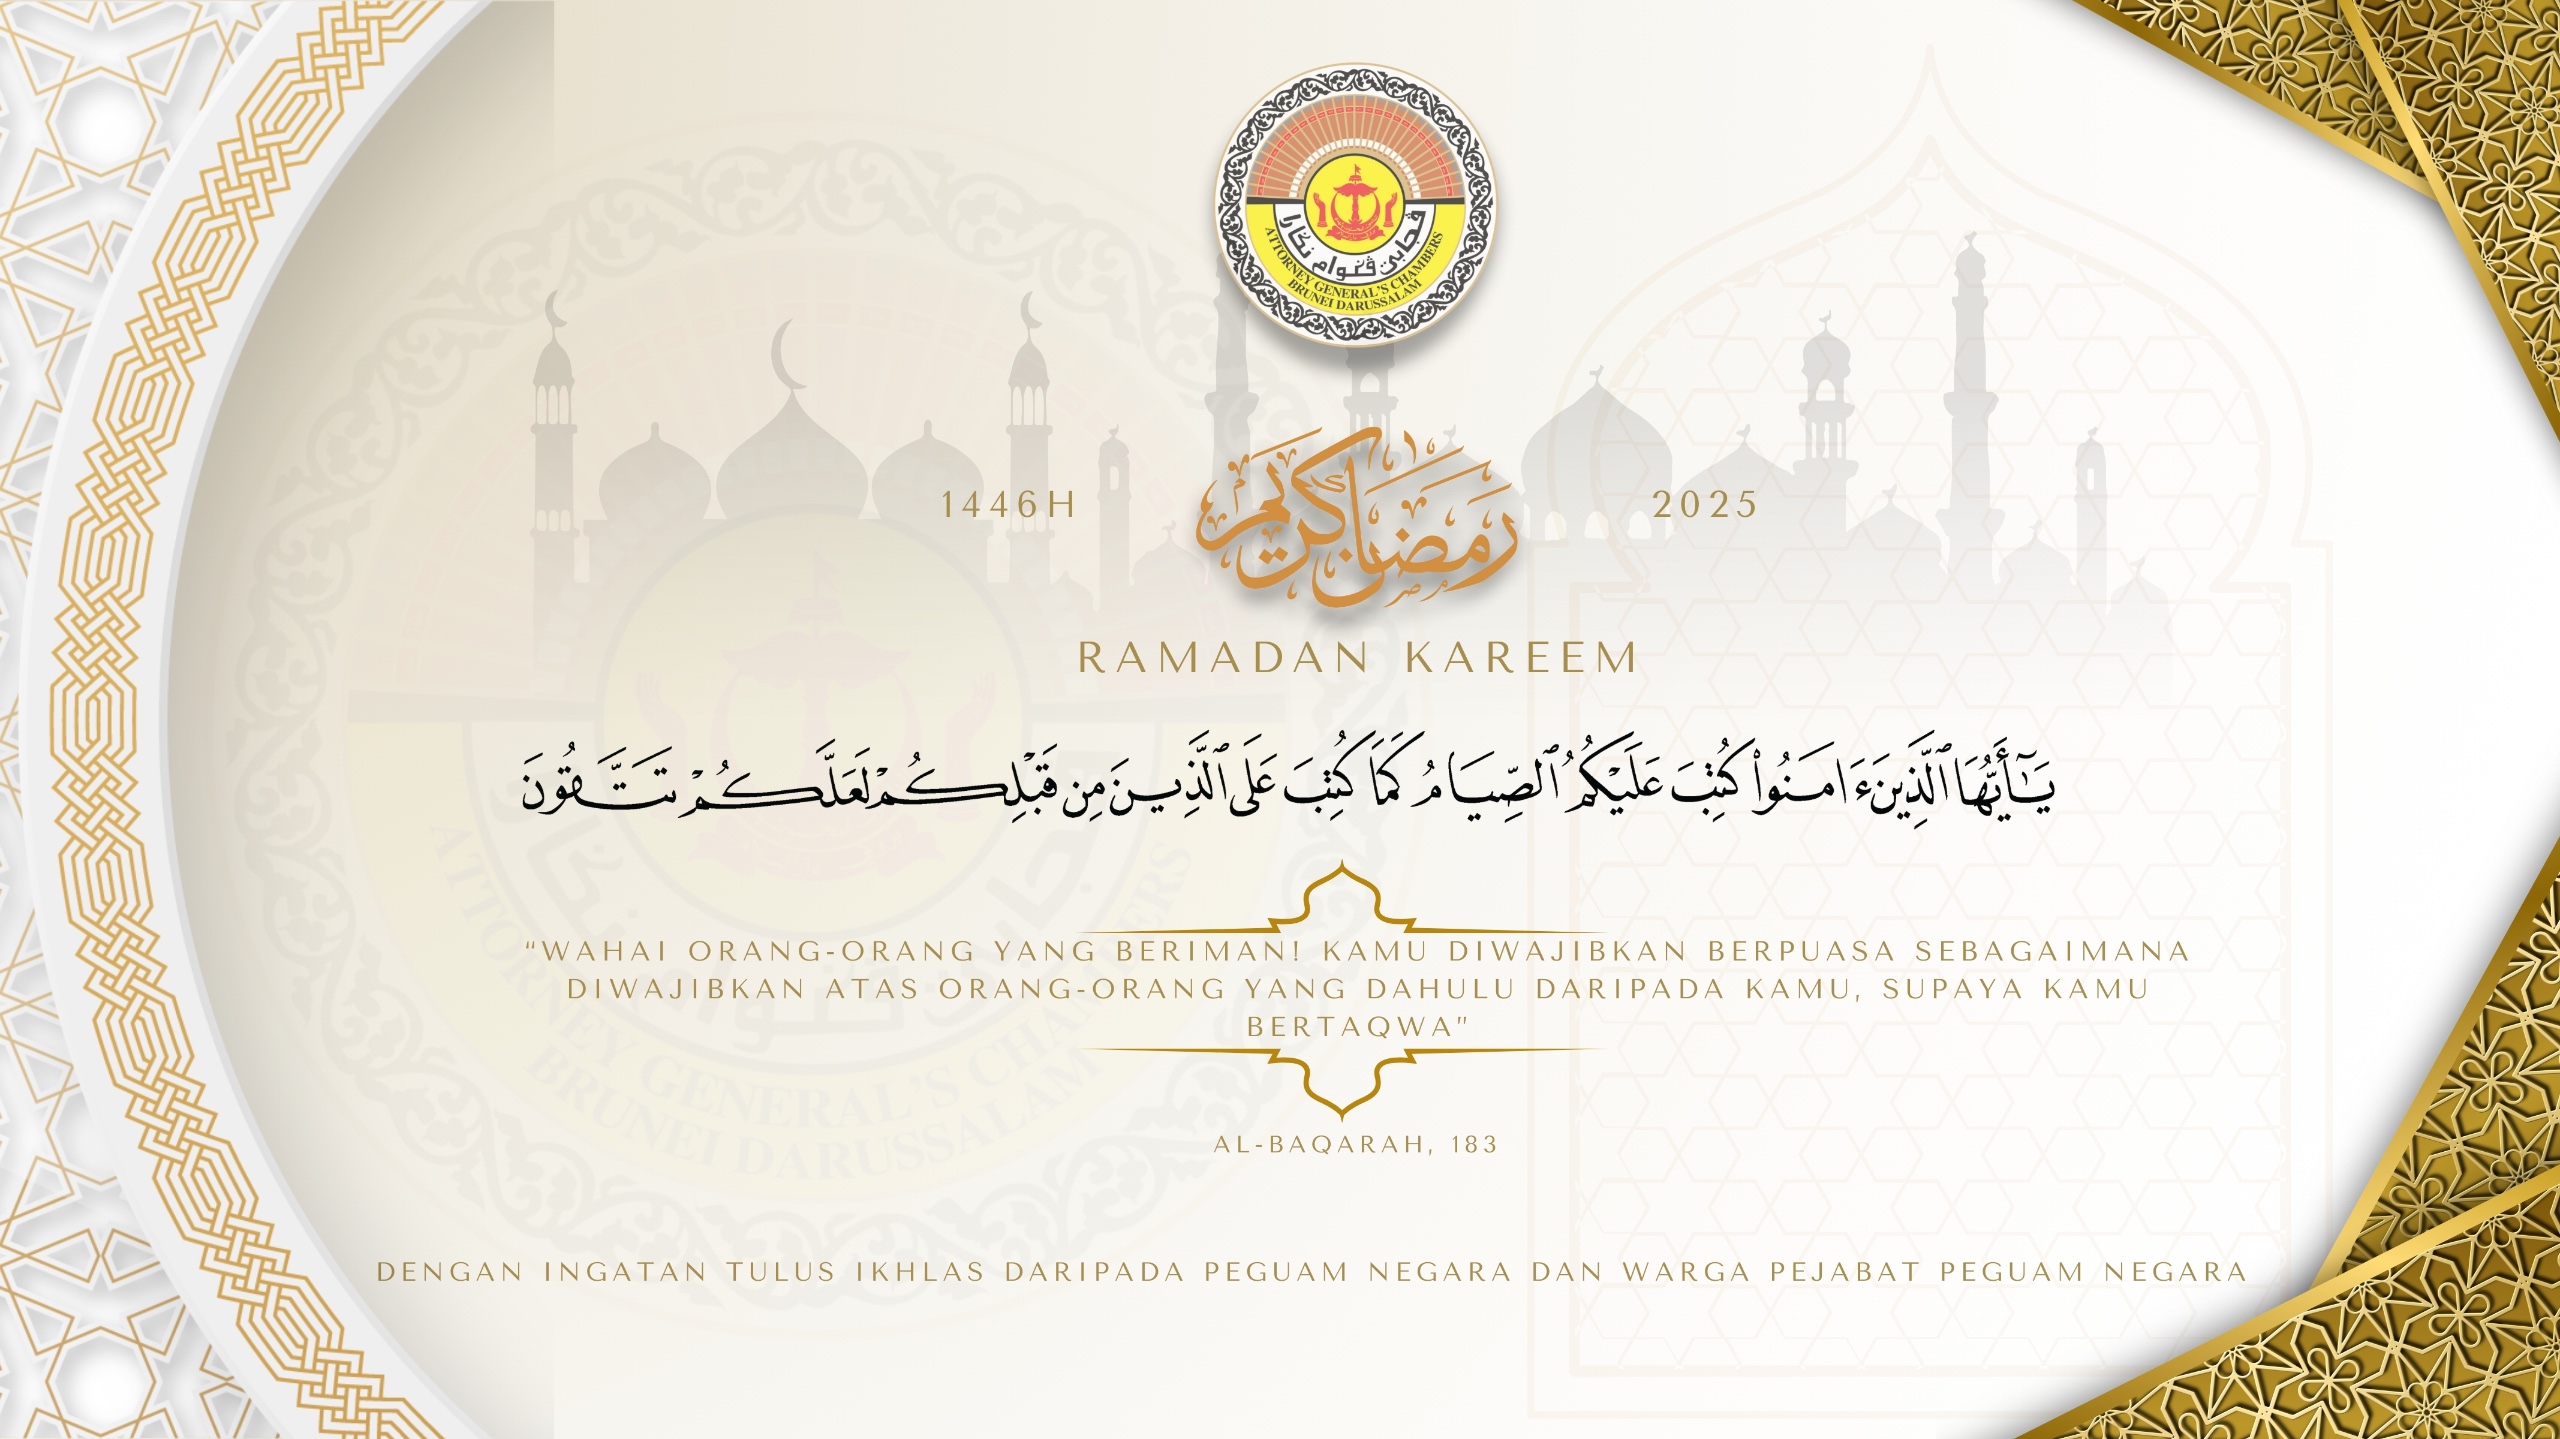 ڤجابت ڤݢوام نݢارا
ATTORNEY GENERAL'S CHAMBERS
BRUNEI DARUSSALAM
1446H
رمضان كريم
2025
RAMADAN KAREEM
يَـٰٓأَيُّهَا ٱلَّذِينَ ءَامَنُوا۟ كُتِبَ عَلَيْكُمُ ٱلصِّيَامُ كَمَا كُتِبَ عَلَى ٱلَّذِينَ مِن قَبْلِكُمْ لَعَلَّكُمْ تَتَّقُونَ
“WAHAI ORANG-ORANG YANG BERIMAN! KAMU DIWAJIBKAN BERPUASA SEBAGAIMANA
DIWAJIBKAN ATAS ORANG-ORANG YANG DAHULU DARIPADA KAMU, SUPAYA KAMU
BERTAQWA”
AL-BAQARAH, 183
DENGAN INGATAN TULUS IKHLAS DARIPADA PEGUAM NEGARA DAN WARGA PEJABAT PEGUAM NEGARA